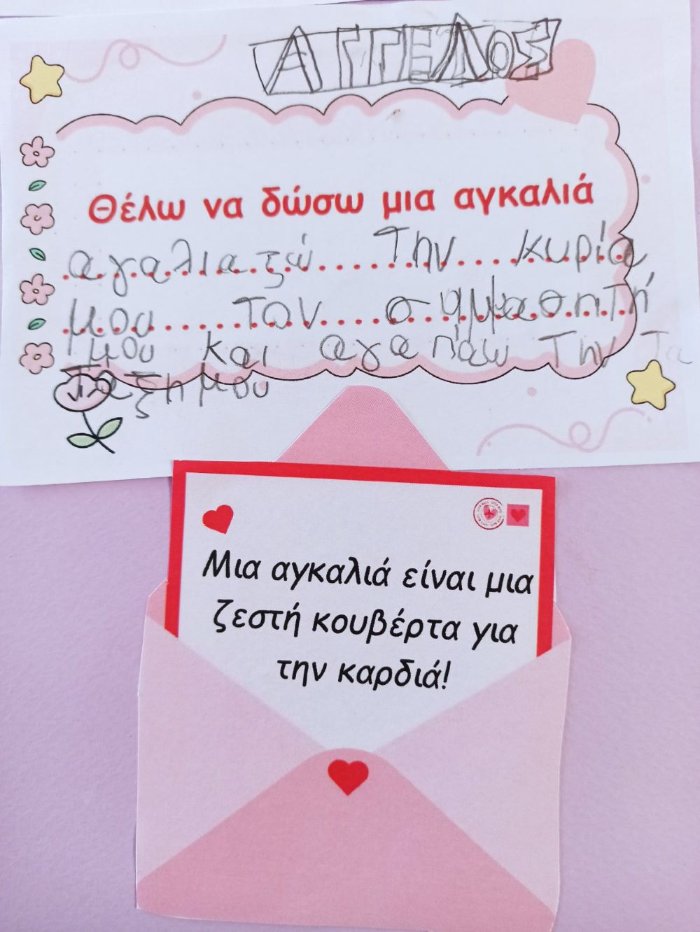 ΑΓΓΕΛΟΣ
Θέλω να δώσω μια αγκαλιά
αγαλιαζώ την κυρία
μου τον σημμαθητή
μου και αγαπάω την τα
ταξη μου
Μια αγκαλιά είναι μια
ζεστή κουβέρτα για
την καρδιά!